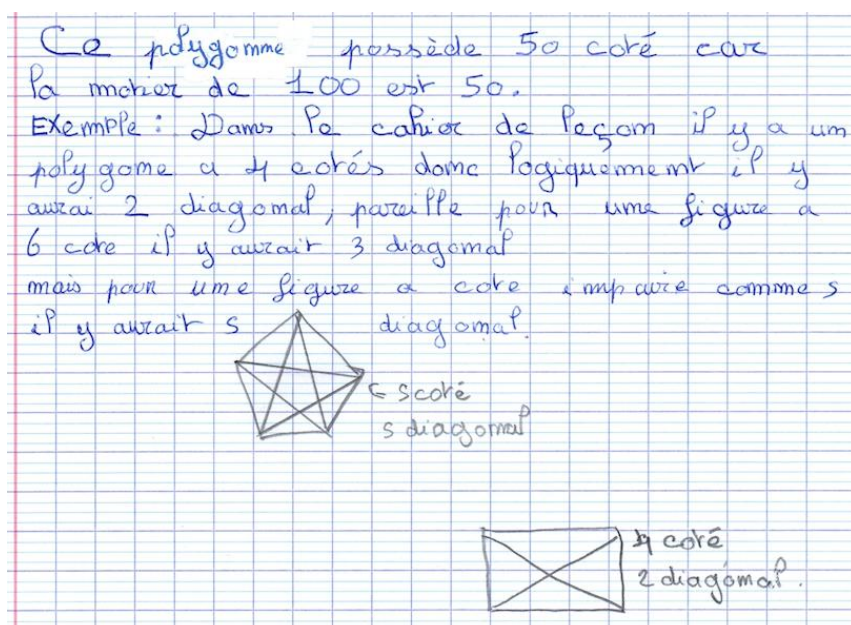 Ce polygomme possède 50 coté car
la motier de 100 est 50.
EXemple : Dams le cahier de leçom il y a um
polygome a 4 cotés domc logiquemment il y
aurai 2 diagomal, pareille pour ume figure a
6 cote il y aurait 3 diagomal
mais pour ume figure a cote impaire comme 5
il y aurait 5 diagomal.
← 5 coté
5 diagomal
4 coté
2 diagomal.